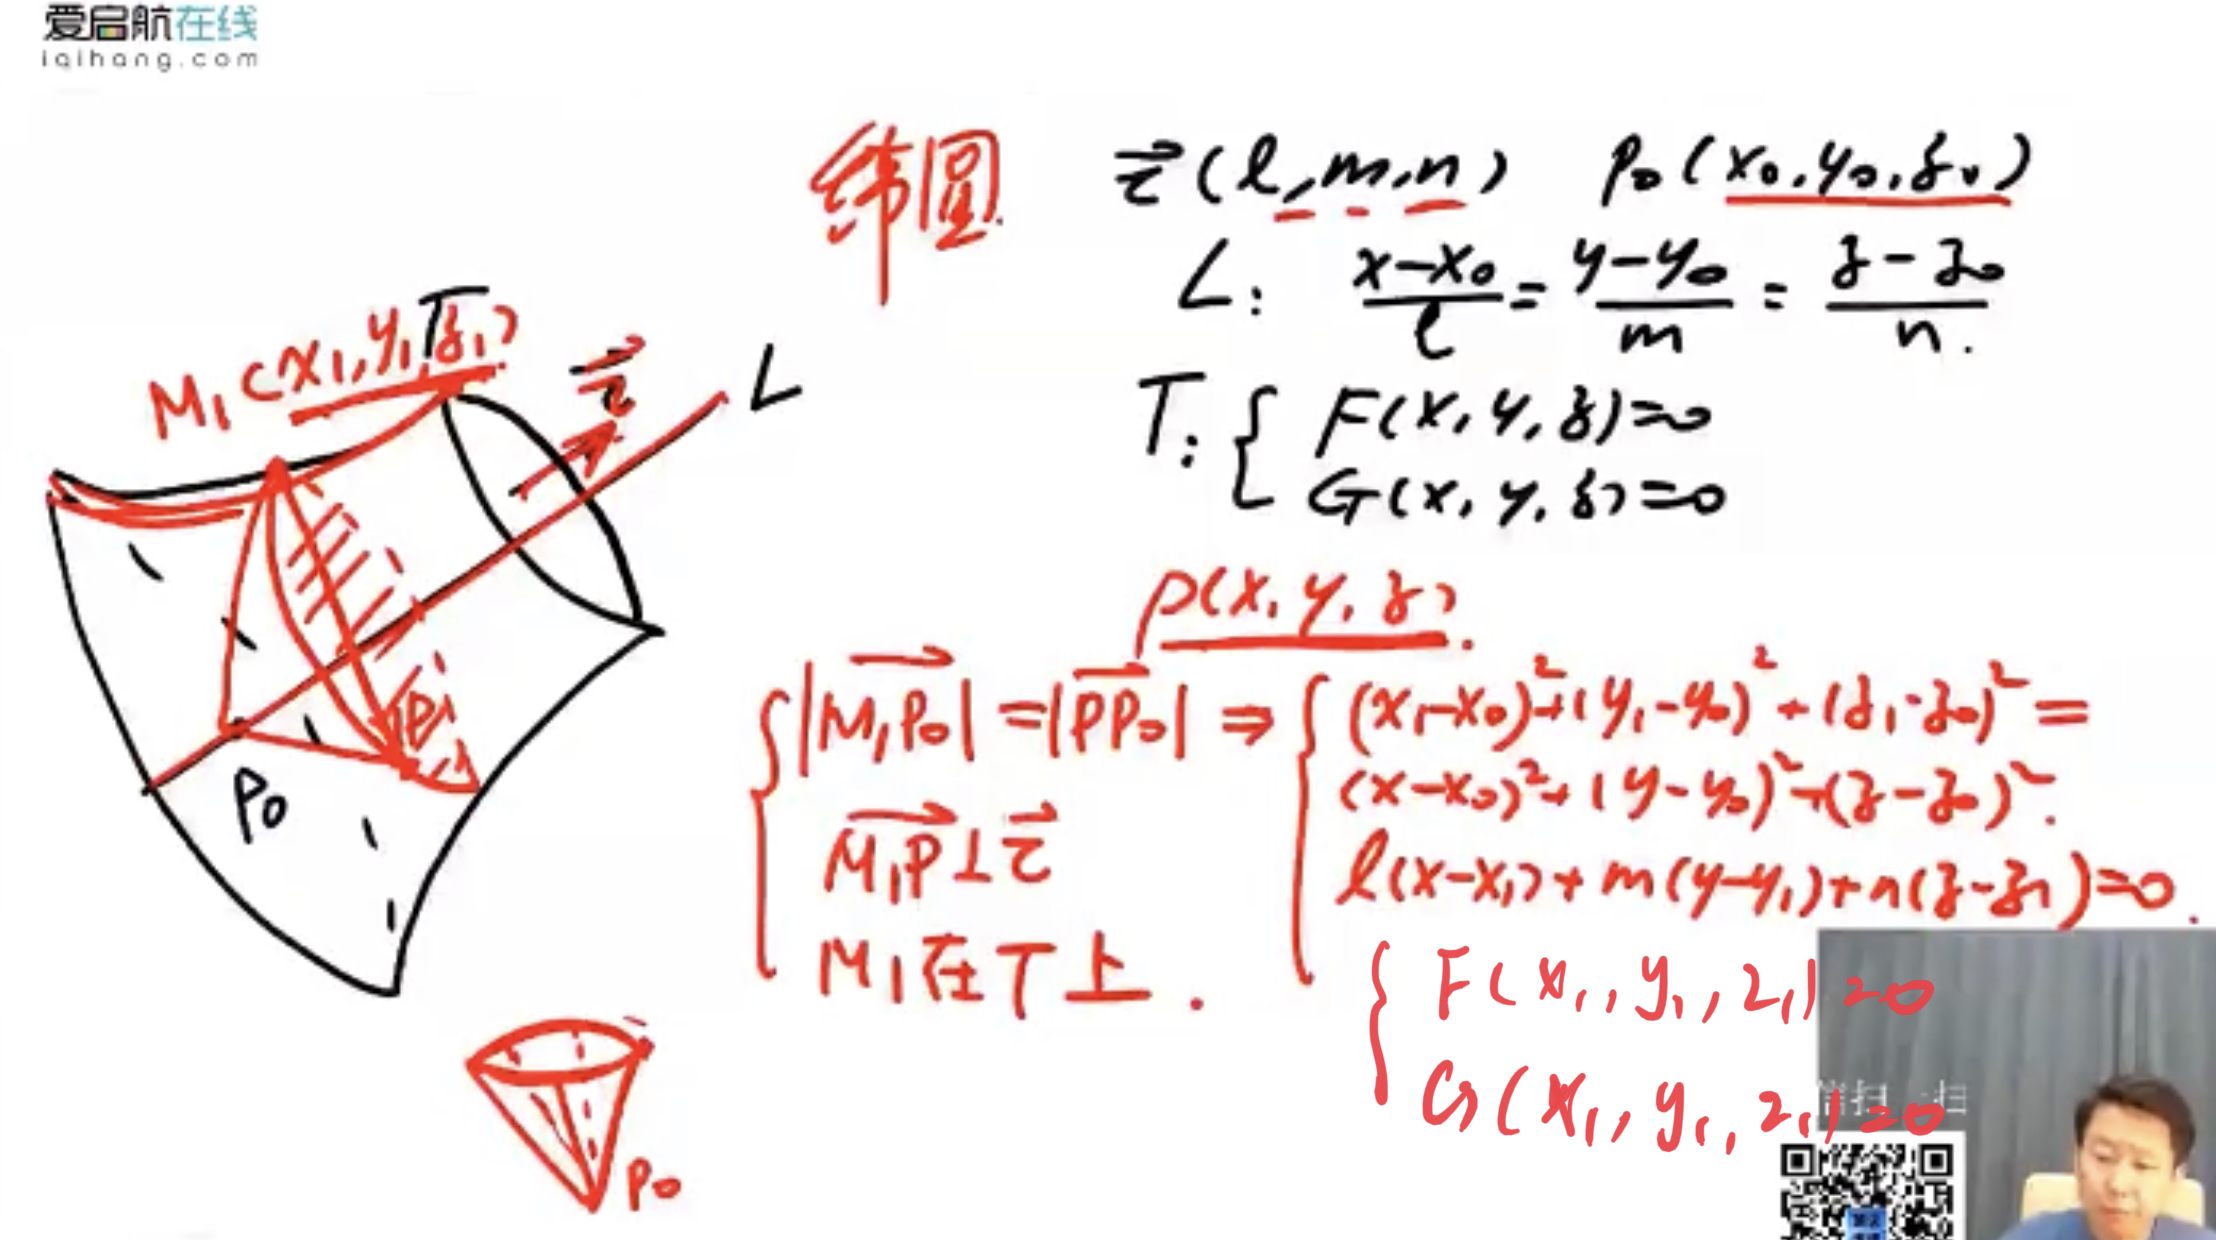 爱启航在线
iqihang.com
纬圆
τ⃗(l,m,n) P₀(x₀,y₀,z₀)
L: (x-x₀)/l = (y-y₀)/m = (z-z₀)/n.
T: { F(x,y,z)=0
G(x,y,z)=0
T
M₁(x₁,y₁,z₁)
τ⃗
L
P₀
P(x,y,z).
{ |M₁P₀|=|PP₀| ⇒ { (x₁-x₀)²+(y₁-y₀)²+(z₁-z₀)²=
(x-x₀)²+(y-y₀)²+(z-z₀)².
M₁P⊥τ⃗
l(x-x₁)+m(y-y₁)+n(z-z₁)=0.
M₁在T上.
{ F(x₁,y₁,z₁)=0
G(x₁,y₁,z₁)=0
P₀